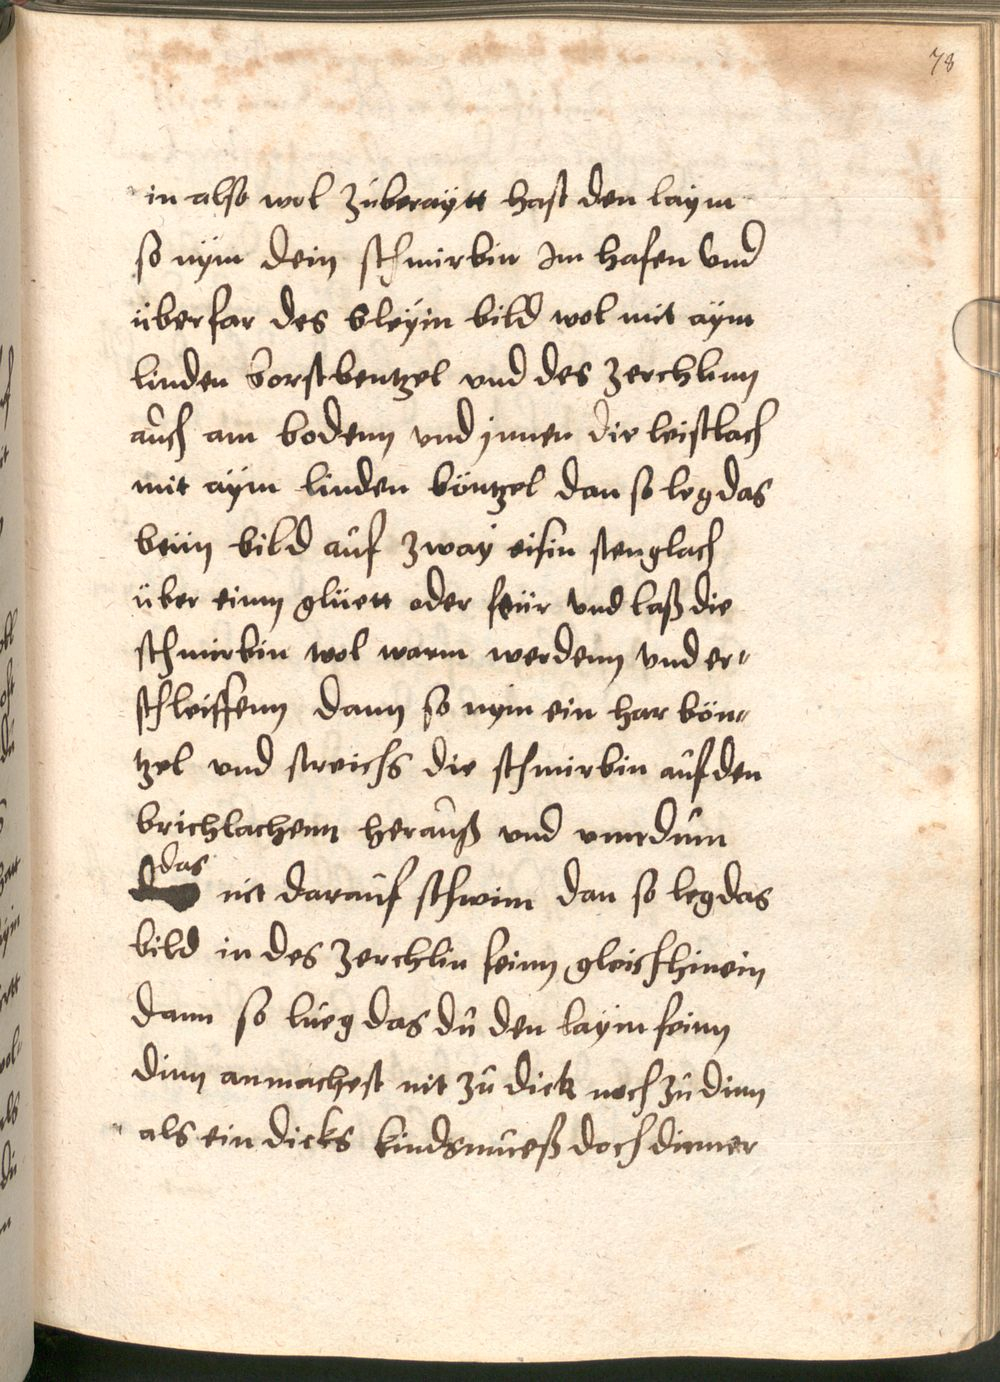 78
in also wol zuberaytt hast den laym
so nÿm dein schmirbin Im hafen vnd
überfar des bleÿin bild wol mit aÿm
linden borstbentzel vnd des zerchlinn
auch am bodenn vnd jnnen die leistlach
mit aÿm linden böntzel dan so leg das
bild auf zwaÿ eisin stenglach
über einn glüett oder feür vnd laß die
schmirbin wol warm werdenn vnd er-
schleiffenn dann so nÿm ein har bön-
tzel vnd streichs die schmirbin auf den
brichlachenn herauß vnd
das nit darauf schwim dan so leg das
bild in des zerchlin feinn gleisch hinein
dann so lueg das du den laym feinn
dinn anmachest nit zu dick noch zu dinn
als ein dicks kindsmueß doch dinner